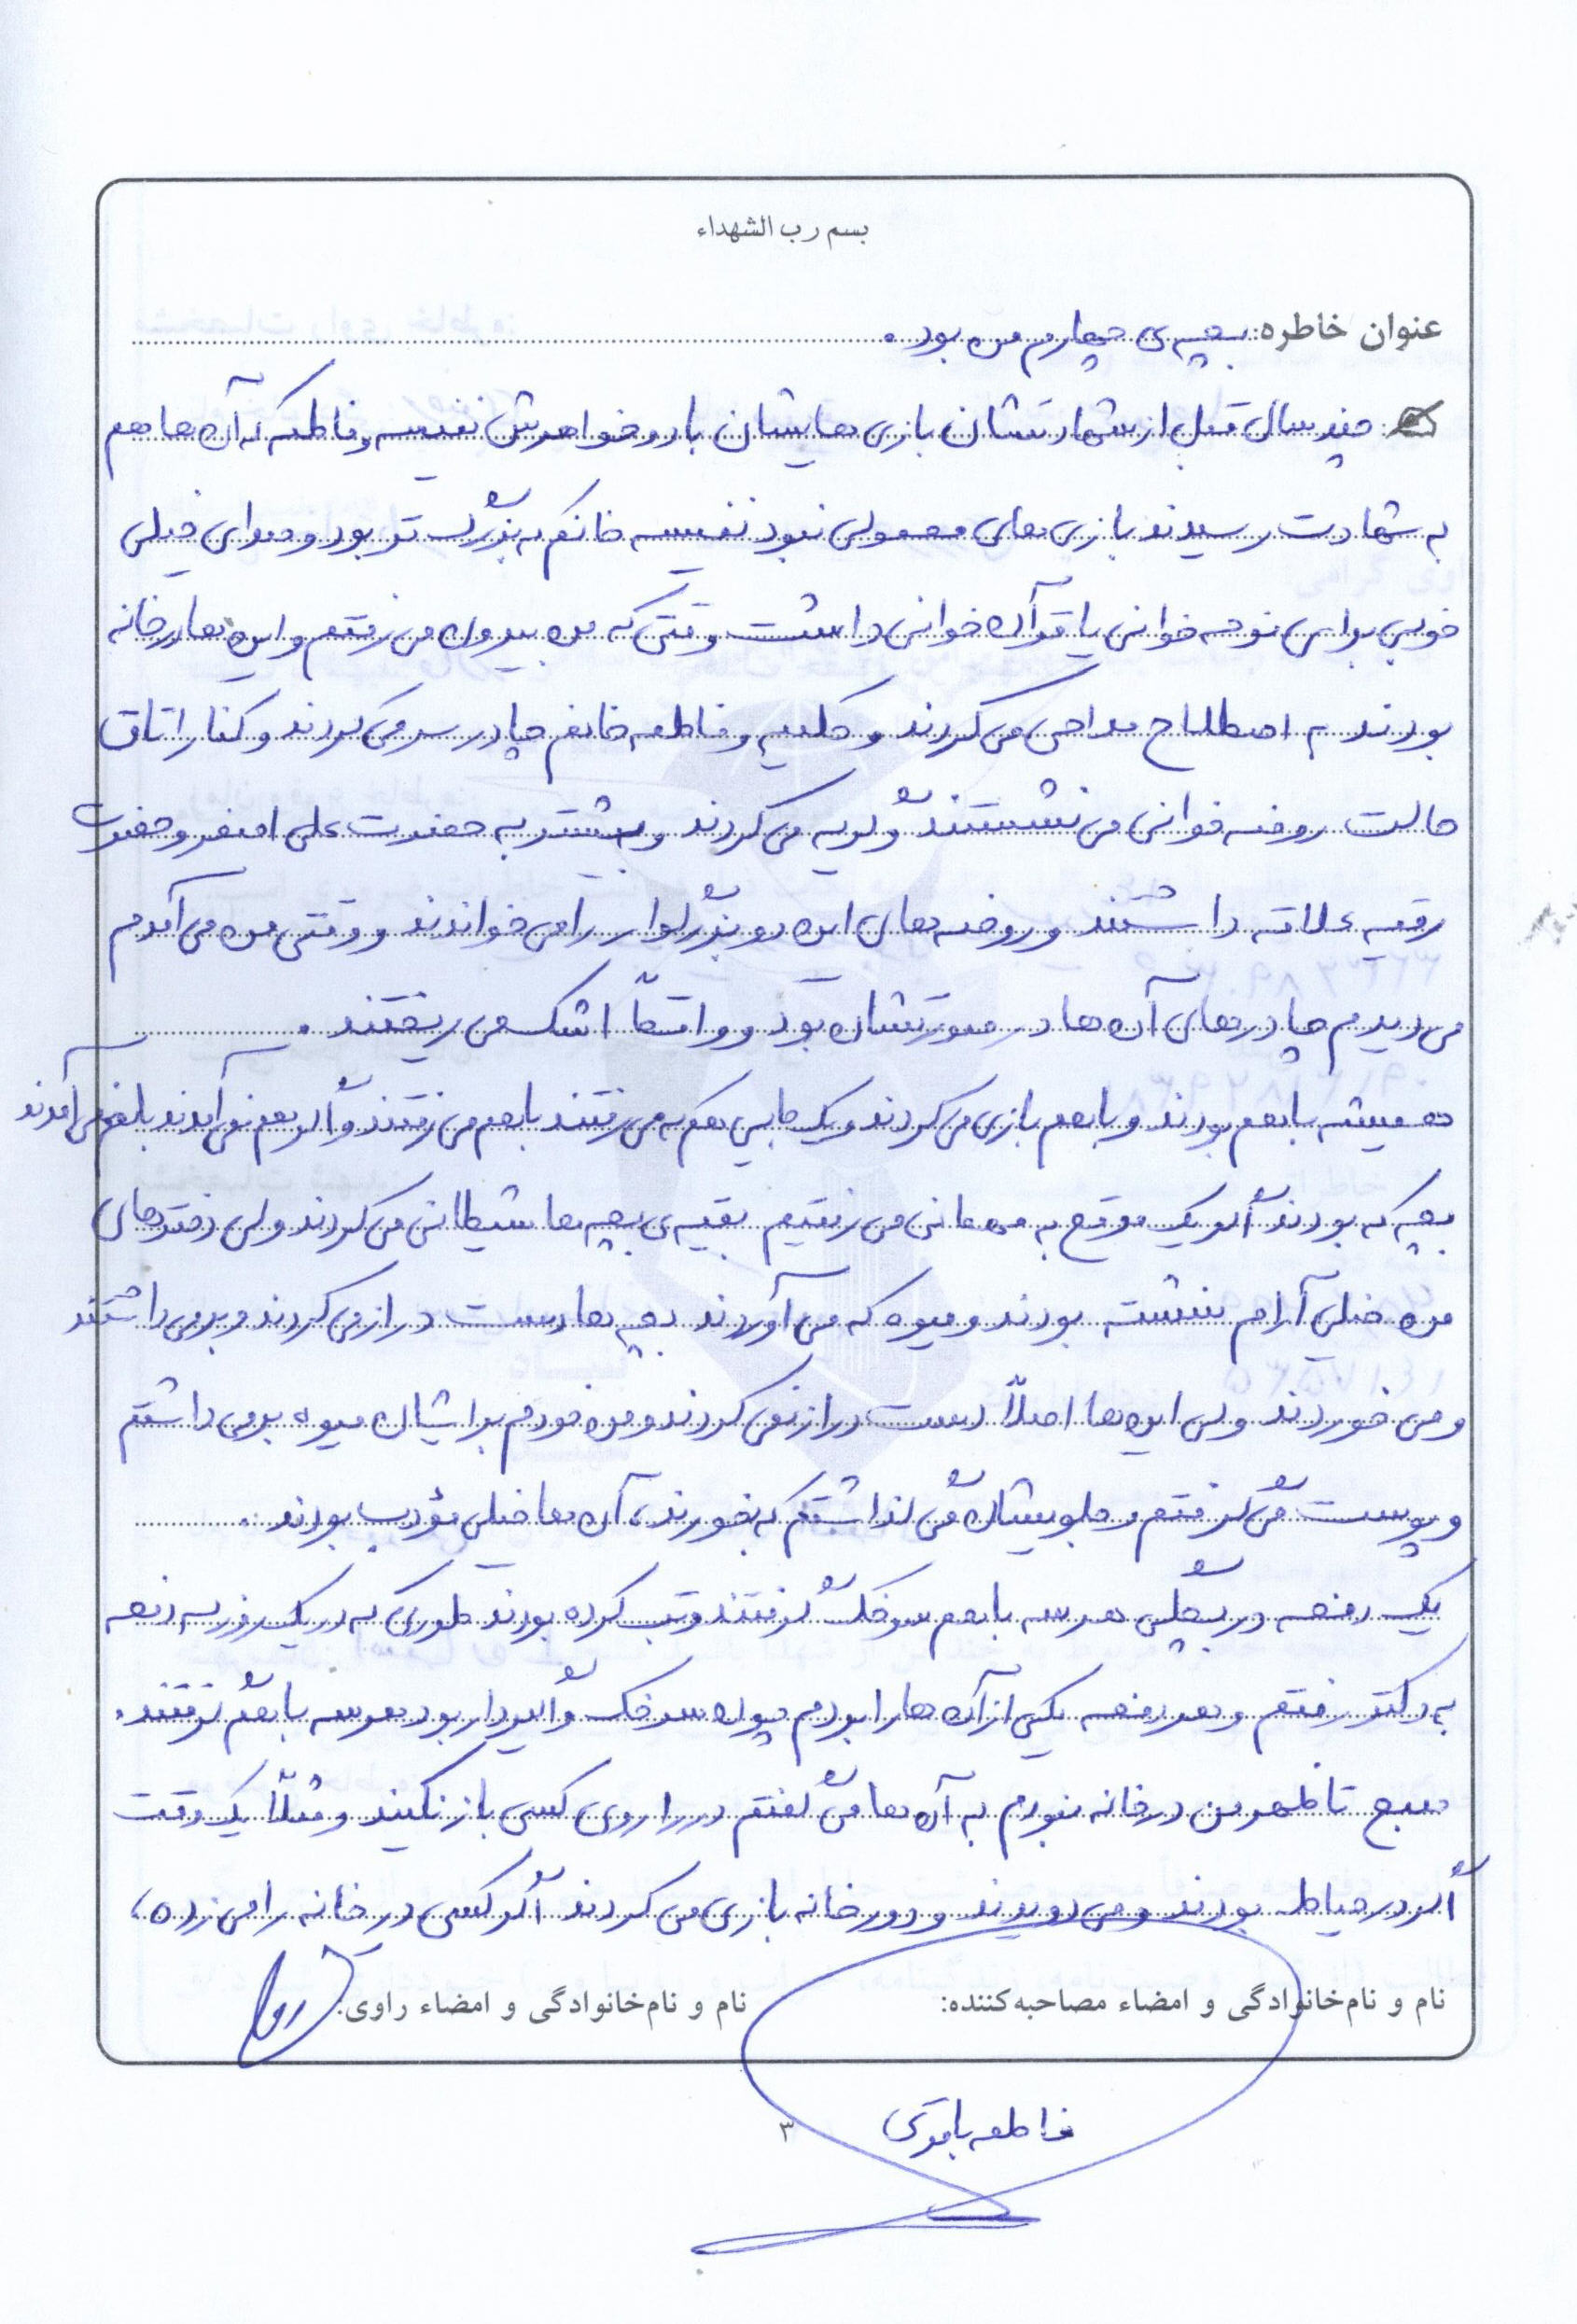 بسم رب الشهداء
عنوان خاطره: بچه‌ی چهارم من بود.
چند سال قبل از شهادتشان بازی هایشان با دو خواهرش نفیسه و فاطمه که آن ها هم
به شهادت رسیدند بازی های معمولی نبود نفیسه خانم که بزرگ تر بود و صدای خیلی
خوبی برای نوحه خوانی یا قرآن خوانی داشت وقتی که من بیرون می رفتم و این ها در خانه
بودند به اصطلاح مداحی می کردند و حکیمه و فاطمه خانم چادر سر می کردند و کنار اتاق
حالت روضه خوانی می نشستند و گریه می کردند و بیشتر به حضرت علی اصغر و حضرت
رقیه علاقه داشتند و روضه های این دو بزرگوار را می خواندند و وقتی من می آمدم
می دیدم چادرهای آن ها در صورتشان بود و واقعاً اشک می ریختند.
همیشه با هم بودند و با هم بازی می کردند و یک جایی هم که می رفتند با هم می رفتند و اگر هم نمی آمدند با هم نمی آمدند
بچه که بودند اگر یک موقع به مهمانی می رفتیم بقیه ی بچه ها شیطانی می کردند ولی دخترهای
من خیلی آرام نشسته بودند و میوه که می آوردند بچه ها دست دراز می کردند و برمی داشتند
و می خوردند ولی این ها اصلاً دست دراز نمی کردند و من خودم برایشان میوه برمی داشتم
و پوست می گرفتم و جلویشان می گذاشتم که بخورند، آن ها خیلی مؤدب بودند.
یک دفعه در بچگی هر سه با هم سرخک گرفتند و تب کرده بودند طوری که در یک روز سه دفعه
به دکتر رفتم و هر دفعه یکی از آن ها را بردم چون سرخک واگیردار بود هر سه با هم گرفتند.
صبح تا ظهر من در خانه نبودم به آن ها می گفتم در را روی کسی باز نکنید و مثلاً یک وقت
اگر در حیاط بودند و می دویدند و دور خانه بازی می کردند اگر کسی در خانه را می زد،
نام و نام‌خانوادگی و امضاء مصاحبه‌کننده:
نام و نام‌خانوادگی و امضاء راوی:
فاطمه یاقوتی
۳